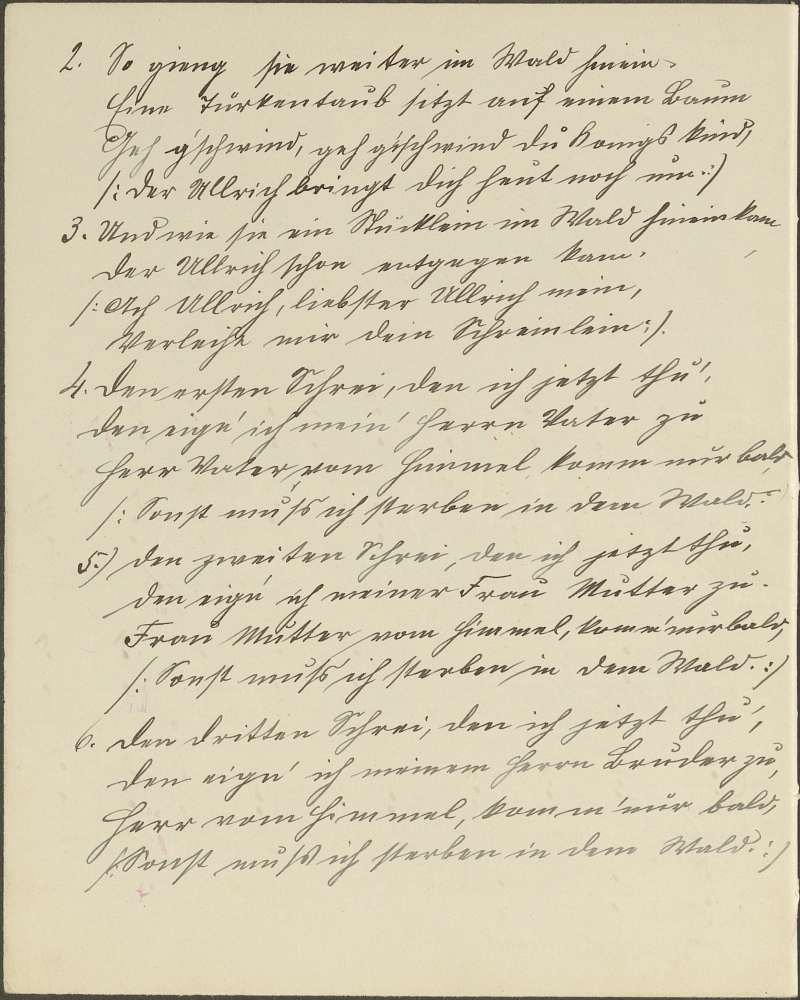 2. So gieng sie weiter im Wald hinein.
Eine Türkentaub sitzt auf einem Baum
Geh g'schwind, geh g'schwind du Königs kind,
/: Der Ullrich bringt dich heut noch um. :/
3. Und wie sie ein Stücklein im Wald hineinkam
Der Ullrich schon entgegen kam.
/: Ach Ullrich, liebster Ullrich mein,
Verleihe mir dein Schreinlein :/.
4. Den ersten Schrei, den ich jetzt thu',
Den eign' ich mein' Herrn Vater zu
Herr Vater, vom Himmel, komm nur bald,
/: Sonst muß ich sterben in dem Wald. :
5.) Den zweiten Schrei, den ich jetzt thu,
Den eign' ich meiner Frau Mutter zu.
Frau Mutter vom Himmel, komm' nur bald,
/: Sonst muß ich sterben in dem Wald. :/
6. Den dritten Schrei, den ich jetzt thu',
Den eign' ich meinem Herrn Bruder zu,
Herr vom Himmel, komm' nur bald,
/: Sonst muß ich sterben in dem Wald. :/